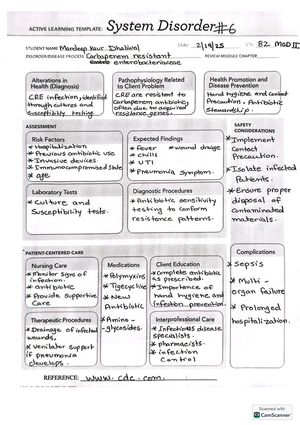 ACTIVE LEARNING TEMPLATE: System Disorder #6
STUDENT NAME Mandeep Kaur Dhaliwal Date: 2/19/25 82 MOD II
DISORDER/DISEASE PROCESS Carbapenem resistant REVIEW MODULE CHAPTER
enterobacteriaceae
Alterations in
Health (Diagnosis)
CRE infection, identified
through cultures and
Susceptibility testing.
Pathophysiology Related
to Client Problem
CRE are resistant to
Carbapenem antibiotic,
often due to acquired
resistance genes.
Health Promotion and
Disease Prevention
Hand hygiene and Contact
Precaution. Antibiotic
Stewardship.
ASSESSMENT
SAFETY
CONSIDERATIONS
Risk Factors
* Hospitalization
* Previous antibiotic use
* Invasive devices
* Immunocompromised state
* age
Expected Findings
* Fever * wound drainge
* chills
* UTI
* Pneumonia symptom.
* Implement
Contact
Precaution.
* Isolate infected
Patients.
* Ensure proper
disposal of
Contaminated
materials.
Laboratory Tests
* Culture and
Susceptibility tests.
Diagnostic Procedures
* Antibiotic sensitivity
testing to confirm
resistance patterns.
PATIENT-CENTERED CARE
Complications
* Sepsis
* Multi-
organ failure
* Prolonged
hospitalization.
Nursing Care
* Monitor signs of
infection
* antibiotic
* Provide Supportive
Care
Medications
* Polymyxins
* Tigecycline
* New
Antibiotic
* Amino-
glycosides.
Client Education
* Complete antibiotic
as prescribed.
* Importance of
hand hygiene and
Infection prevention.
Therapeutic Procedures
* Drainage of infected
wounds,
* Ventilator support
if pneumonia
develops.
Interprofessional Care
* Infectious disease
specialists.
* pharmacists.
* infection
Control
REFERENCE: www.cdc.com.
Scanned with
CamScanner